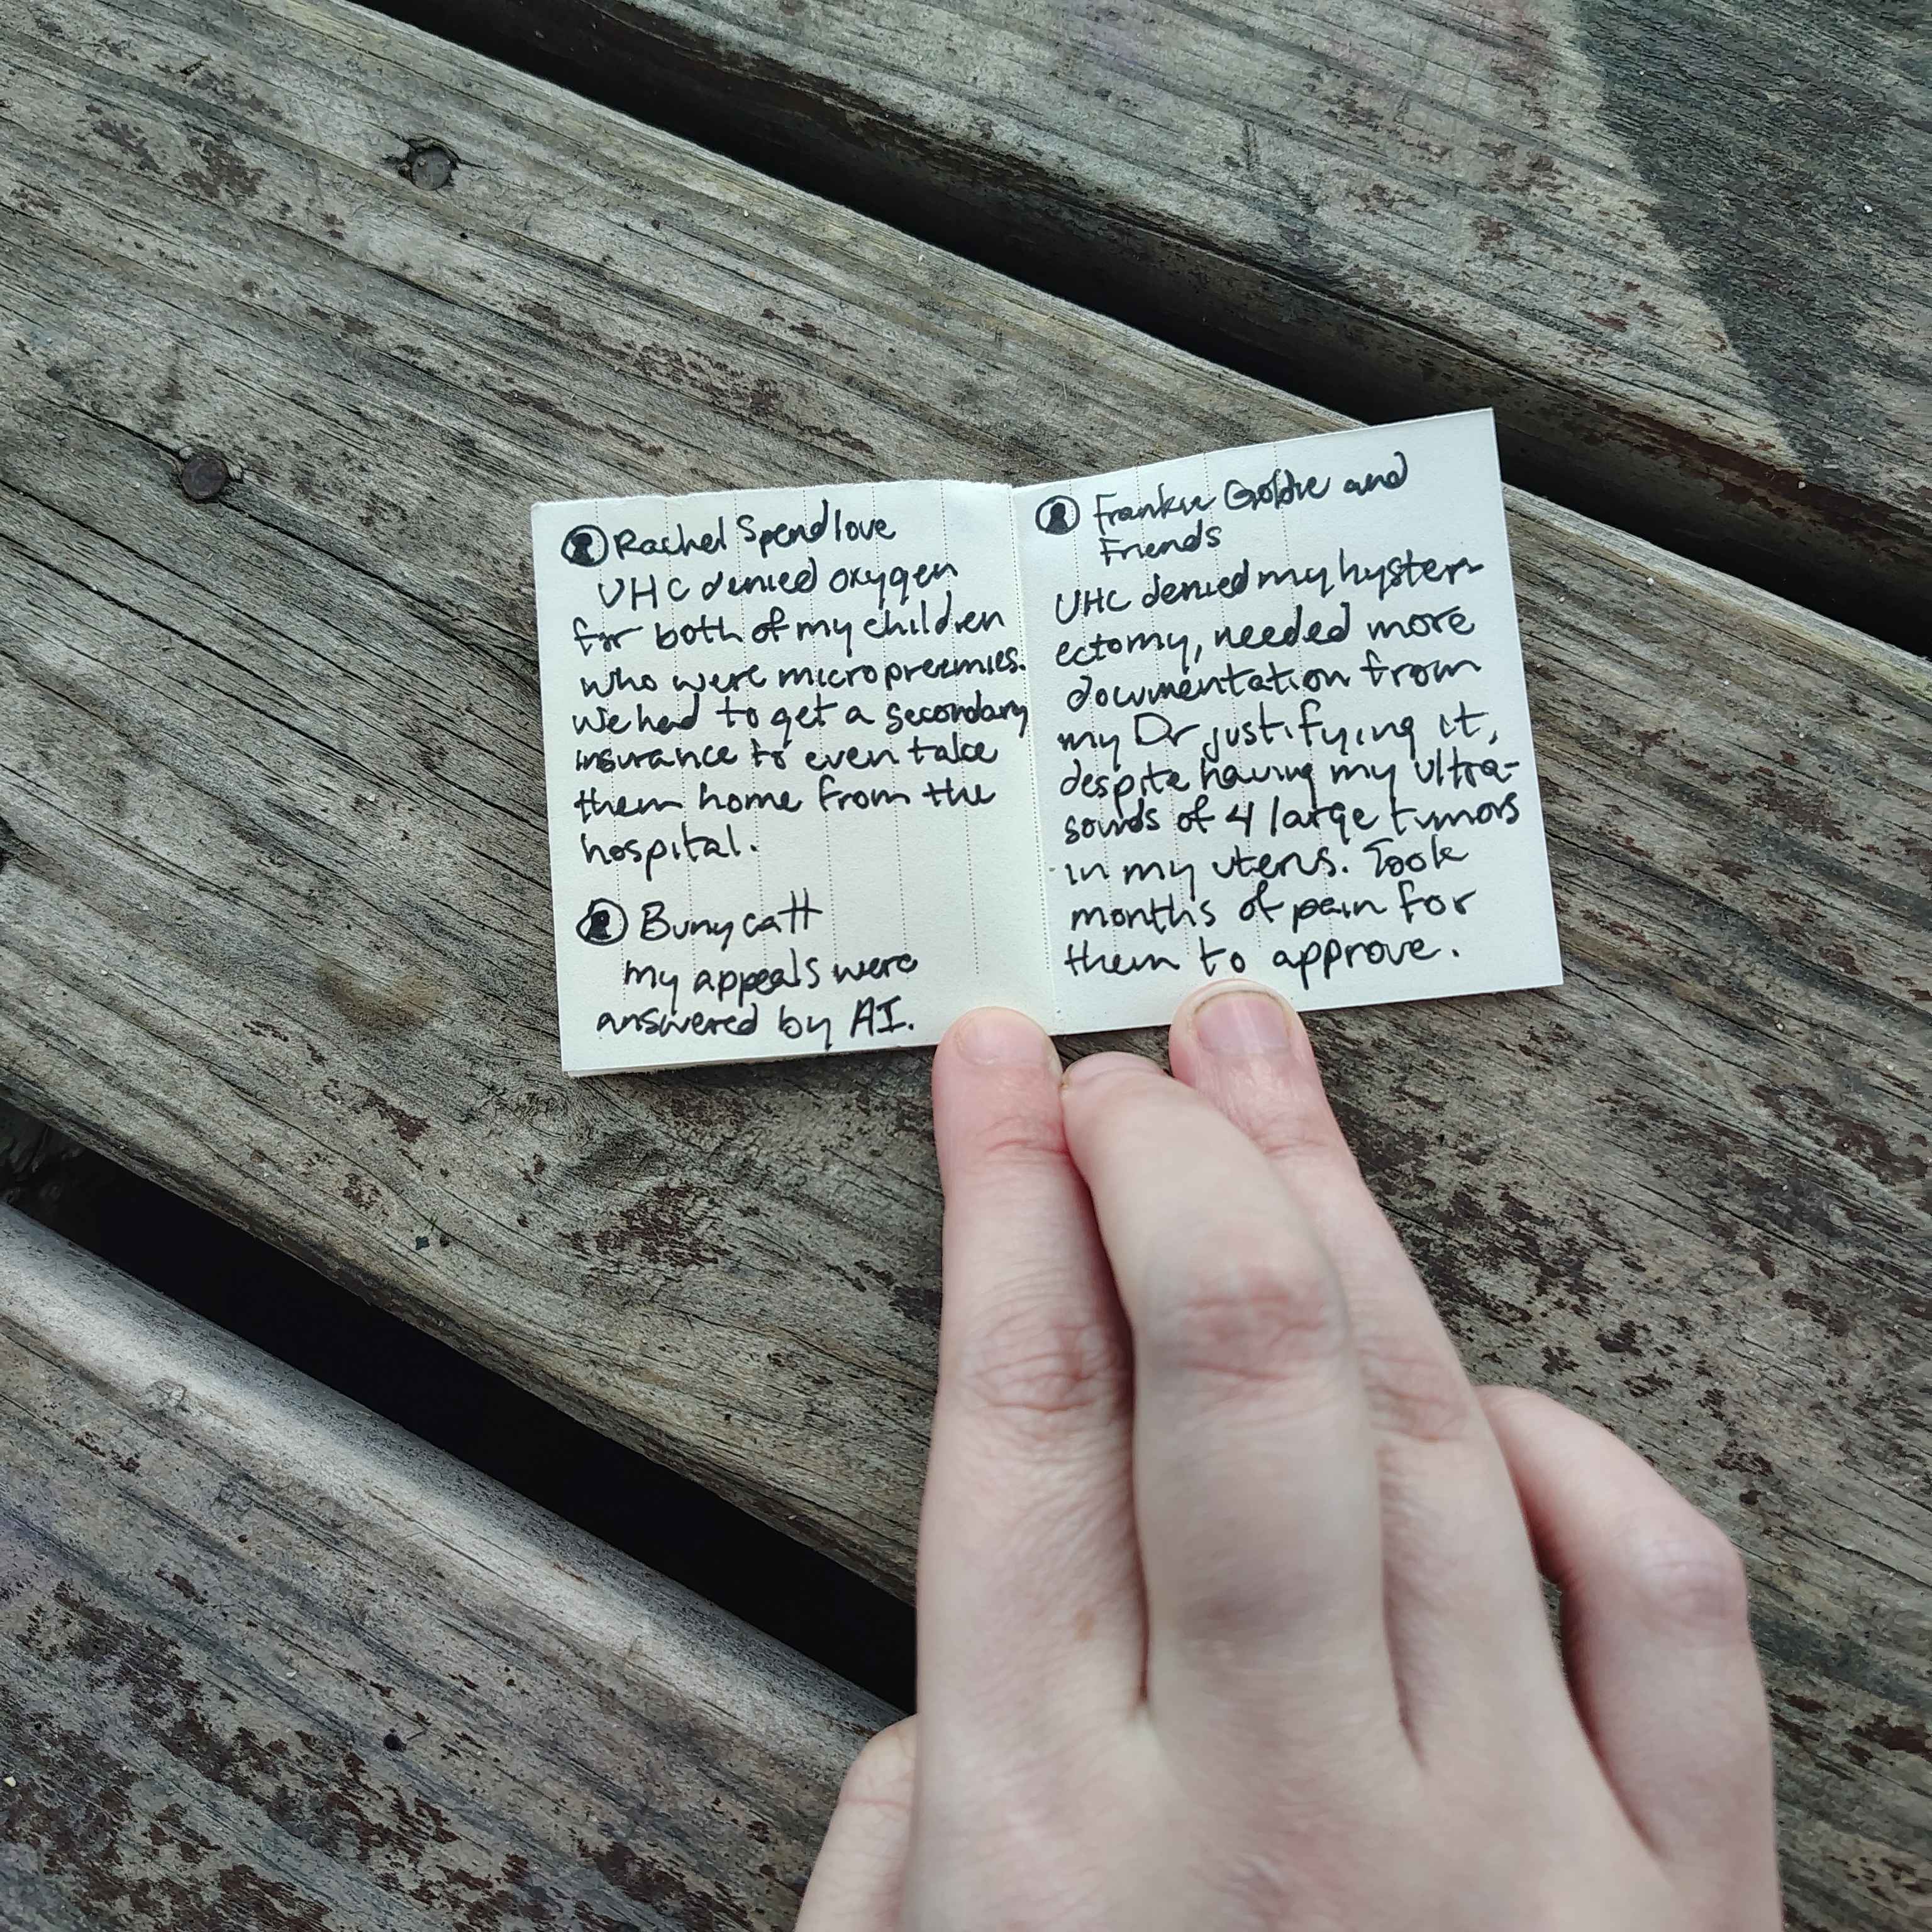 Rachel Spendlove
UHC denied oxygen
for both of my children
who were micropreemies.
We had to get a secondary
insurance to even take
them home from the
hospital.
Bunycatt
my appeals were
answered by AI.
Frankie Goldie and
Friends
UHC denied my hyster-
ectomy, needed more
documentation from
my Dr justifying it,
despite having my ultra-
sounds of 4 large tumors
in my uterus. Took
months of pain for
them to approve.